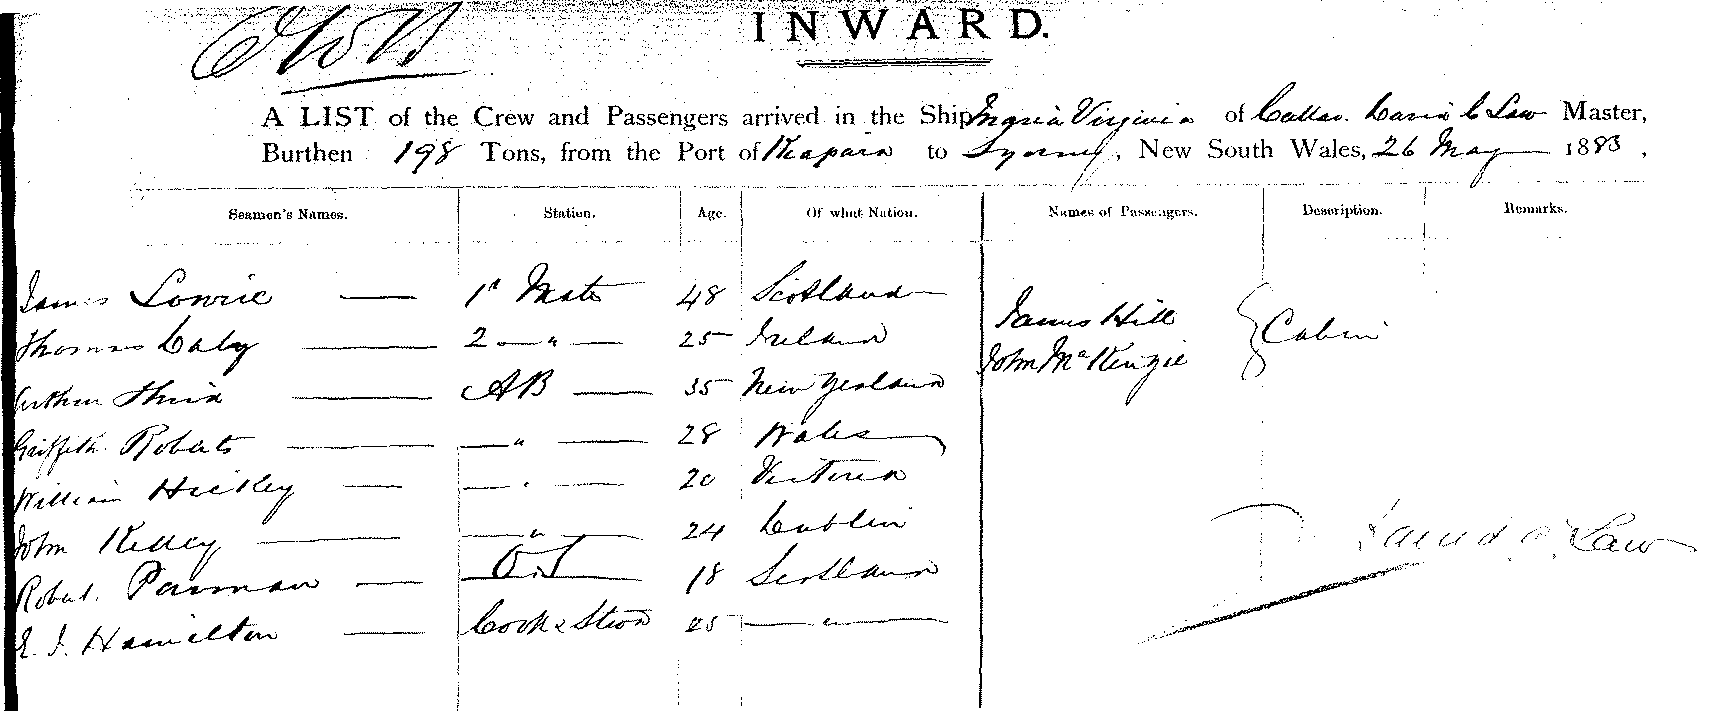 INWARD.
A LIST of the Crew and Passengers arrived in the Ship Ingria Virginia of Callao. David C Law Master,
Burthen 198 Tons, from the Port of Kapara to Sydney, New South Wales, 26 May 1883.
Seamen's Names. Station. Age. Of what Nation. Names of Passengers. Description. Remarks.
James Lowrie — 1st Mate 48 Scotland
James Hill
Thomas Caly — 2 — " — 25 Ireland
Cabin
John McKenzie
Arthur — AB — 35 New Zealand
Griffith Roberts — " — 28 Wales
William Hickey — " — 20 Victoria
John Kelley — " — 24 Dublin
David C. Law
Robert. Parman — O.S 18 Scotland
E. J. Hamilton — Cook & Stew 25 — " —